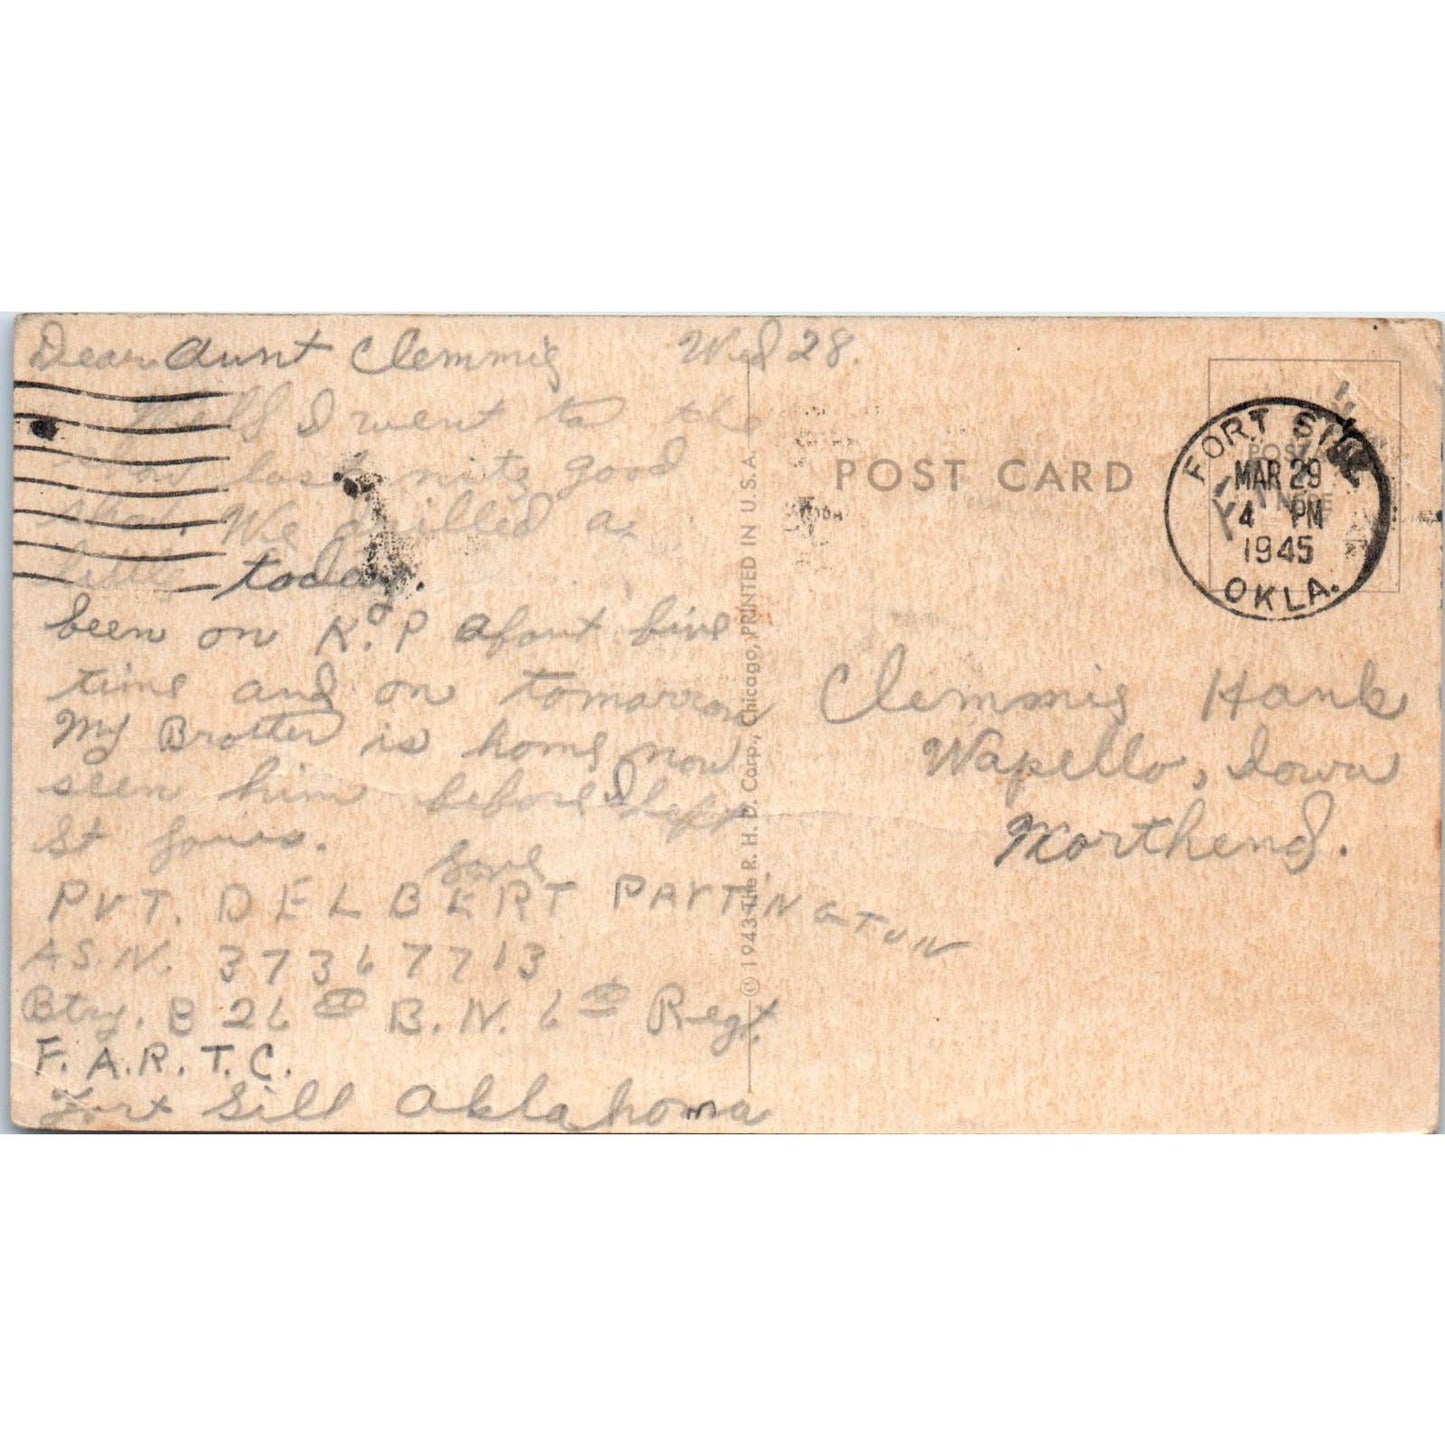 Dear Aunt Clemmie Wed 28.
Well I went to the
show last nite good
show. We drilled a
little today.
been on K.P about five
time and on tomarrow
My Brotter is home now
seen him before I left
St Louis.
Love
PVT. DELBERT PARTINGTON
A.S.N. 37367713
Btry. B 26th B.N. 6th Regt.
F.A.R.T.C.
Fort Sill Oklahoma
© 1943 The R. H. D. Corp., Chicago, PRINTED IN U.S.A.
POST CARD
FORT SILL
MAR 29
4 PM
1945
OKLA.
Clemmie Hank
Wapello, Iowa
Northend.